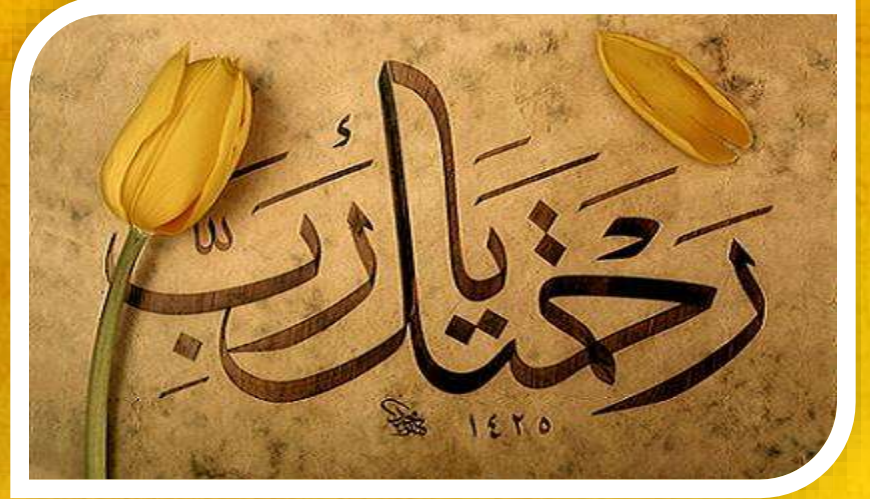 رَحْمَتَكَ يَا رَبِّ
١٤٢٥